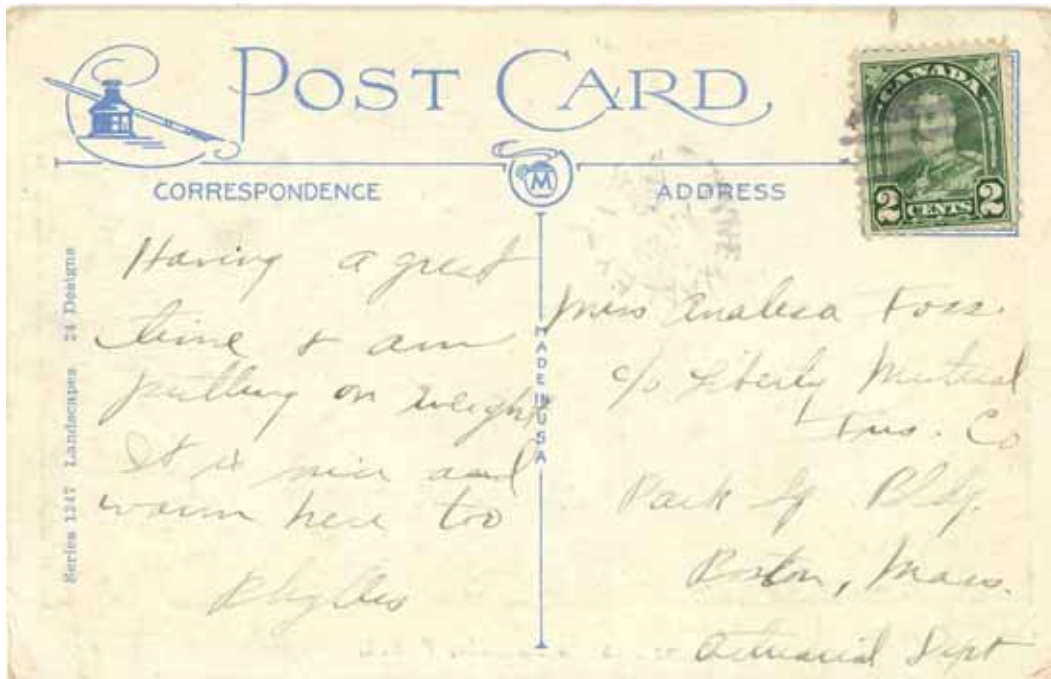 POST CARD
CANADA
2 CENTS 2
M
CORRESPONDENCE
ADDRESS
Series 1247 Landscapes 24 Designs
MADE IN USA
Having a great
time & am
putting on weight
It is nice and
warm here too
Phyllis
Miss Foss.
c/o Liberty Mutual
Ins. Co
Park Sq Bldg.
Boston, Mass.
Actuarial Dept